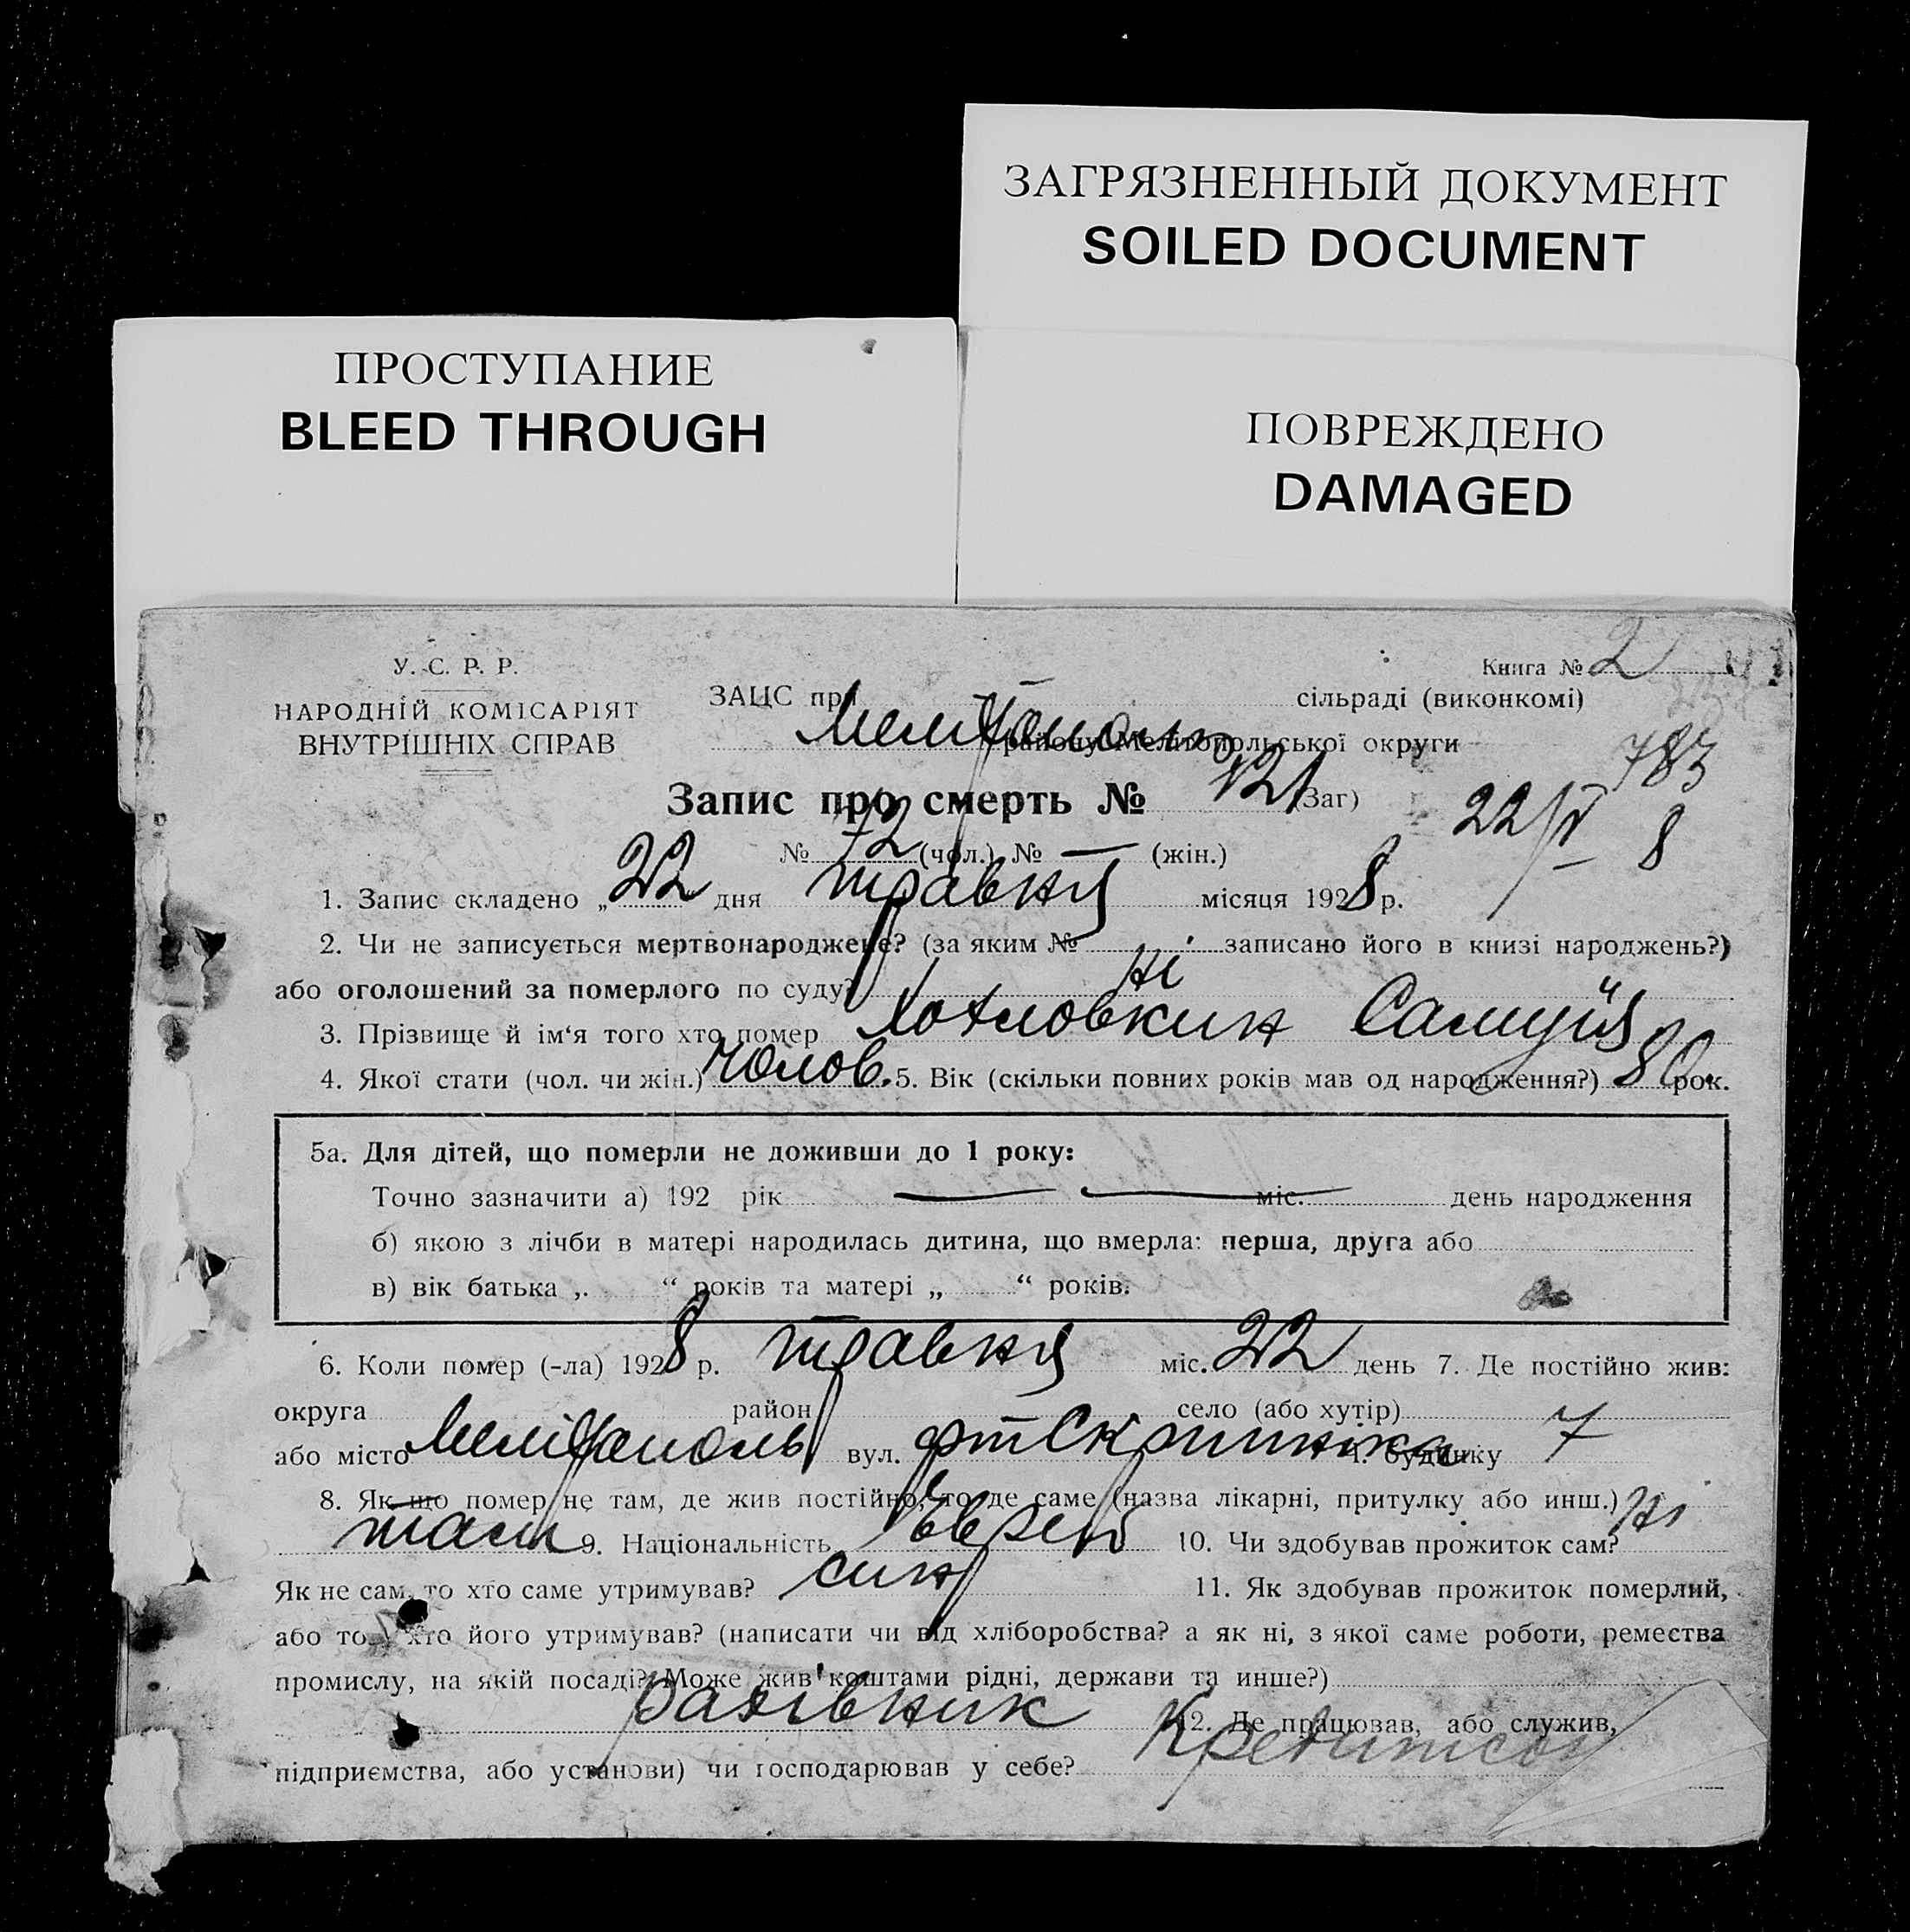 ЗАГРЯЗНЕННЫЙ ДОКУМЕНТ
SOILED DOCUMENT
ПРОСТУПАНИЕ
BLEED THROUGH
ПОВРЕЖДЕНО
DAMAGED
У. С. Р. Р.
НАРОДНІЙ КОМІСАРІЯТ
ВНУТРІШНІХ СПРАВ
Книга № 2
ЗАЦС при сільраді (виконкомі)
району Мелітопольської округи
783
Запис про смерть № 121 (Заг) 22/V 8
№ 72 (чол.) № — (жін.)
1. Запис складено „22" дня травня місяця 1928 р.
2. Чи не записується мертвонароджене? (за яким № записано його в книзі народжень?)
або оголошений за померлого по суду? ні
3. Прізвище й ім'я того хто помер Хотловкин Самуїл
4. Якої стати (чол. чи жін.) чолов. 5. Вік (скільки повних років мав од народження?) 80 рок.
5а. Для дітей, що померли не доживши до 1 року:
Точно зазначити а) 192 рік — — міс. день народження
б) якою з лічби в матері народилась дитина, що вмерла: перша, друга або
в) вік батька „ “ років та матері „ “ років.
6. Коли помер (-ла) 1928 р. травня міс. 22 день 7. Де постійно жив:
округа район село (або хутір)
або місто Мелітополь вул. ч. будинку 7
8. Як що помер не там, де жив постійно, то де саме (назва лікарні, притулку або инш.)
там 9. Національність Еврей 10. Чи здобував прожиток сам? ні
Як не сам, то хто саме утримував? син 11. Як здобував прожиток померлий,
або той хто його утримував? (написати чи від хліборобства? а як ні, з якої саме роботи, ремества
промислу, на якій посаді? Може жив коштами рідні, держави та инше?)
рахівник 12. Де працював, або служив,
підприємства, або установи) чи господарював у себе?